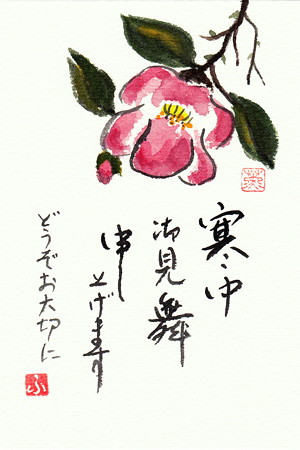 寒中
御見舞
申し上げます
どうぞお大切に
ふ